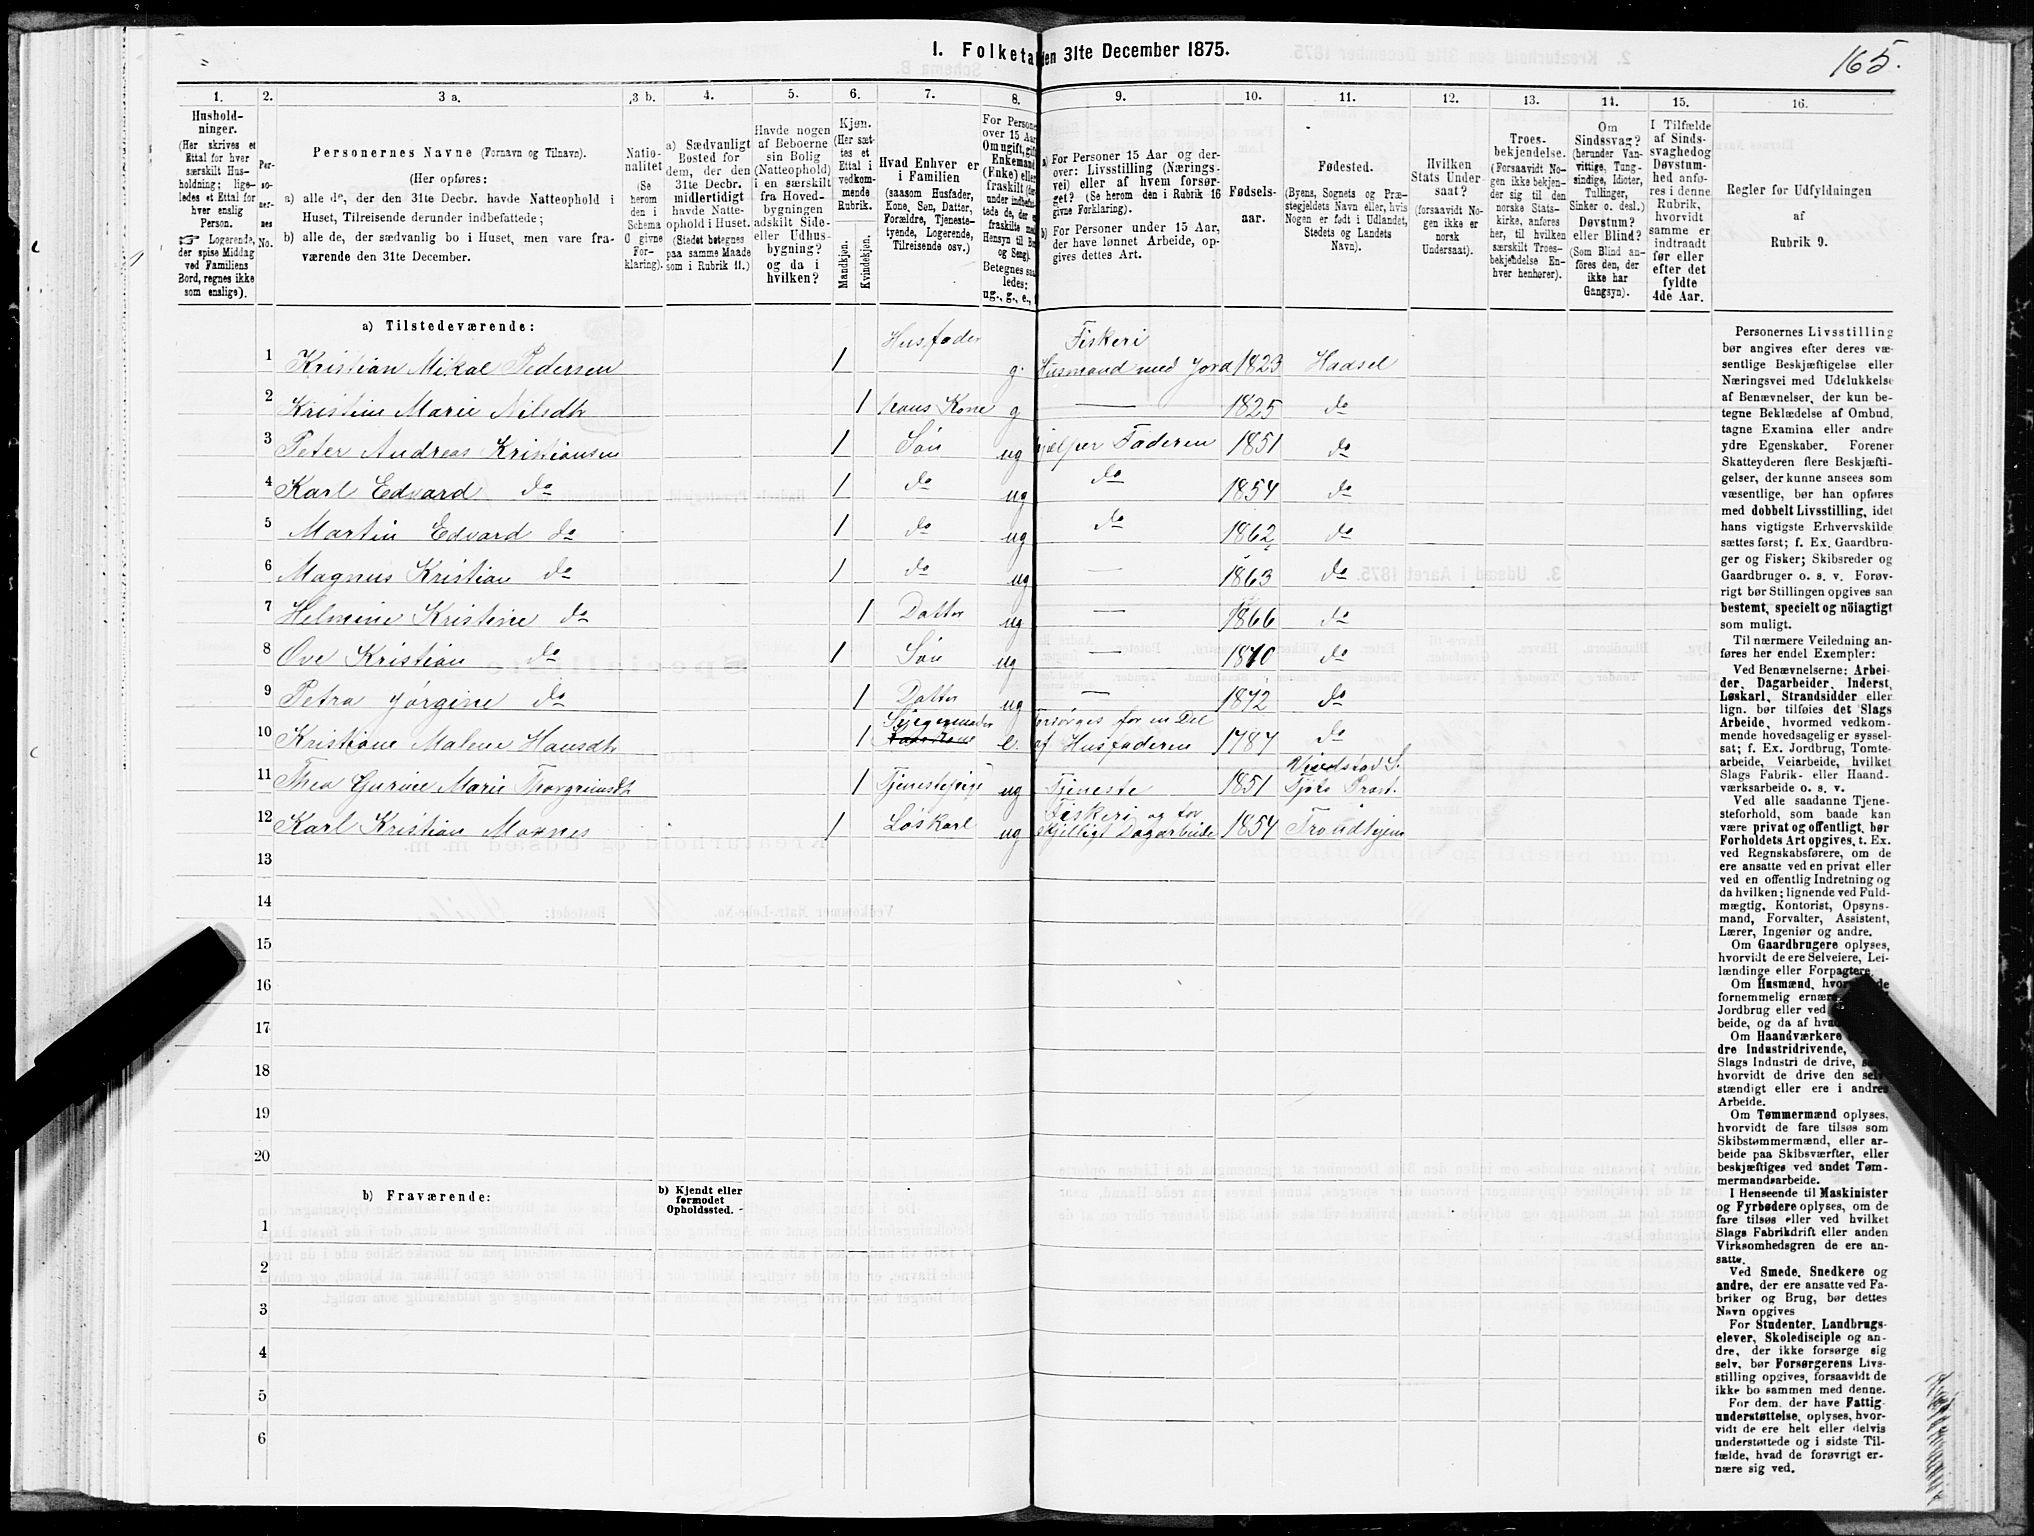 165.
I. Folketa den 31te December 1875.
1. 2. 3 a. 3 b. 4. 5. 6. 7. 8. 9. 10. 11. 12. 13. 14. 15. 16.
Hushold-
ninger.
(Her skrives et
Ettal for hver
særskilt Hus-
holdning; lige-
ledes et Ettal for
hver enslig
Person.
☞ Logerende,
der spise Middag
ved Familiens
Bord, regnes ikke
som enslige).
Per-
so-
ner-
nes
No.
Personernes Navne (Fornavn og Tilnavn).
(Her opføres:
a) alle de, der den 31te Decbr. havde Natteophold i
Huset, Tilreisende derunder indbefattede;
b) alle de, der sædvanlig bo i Huset, men vare fra-
værende den 31te December.
Natio-
nalitet
(Se
herom
den i
Schema
C givne
For-
klaring).
a) Sædvanligt
Bosted for
dem, der den
31te Decbr.
midlertidigt
havde Natte-
ophold i Huset.
(Stedet betegnes
paa samme Maade
som i Rubrik 11.)
Havde nogen
af Beboerne
sin Bolig
(Natteophold)
i en særskilt
fra Hoved-
bygningen
adskilt Side-
eller Udhus-
bygning?
og da i
hvilken?
Kjøn.
(Her sæt-
tes et
Ettal i
vedkom-
mende
Rubrik.
Mandkjøn.
Kvindekjøn.
Hvad Enhver er
i Familien
(saasom Husfader,
Kone, Søn, Datter,
Forældre, Tjeneste-
tyende, Logerende,
Tilreisende osv.)
For Persone
over 15 Aar
Om ugift, gift
Enkemand
(Enke) eller
fraskilt (der
under indbefat-
tede de, der er
fraskilte med
Hensyn til Bo
og Seng).
Betegnes saa
ledes:
ug., g., e.,
a) For Personer 15 Aar og der-
over: Livsstilling (Nærings-
vei) eller af hvem forsør-
get? (Se herom den i Rubrik 16
givne Forklaring).
b) For Personer under 15 Aar,
der have lønnet Arbeide, op-
gives dettes Art.
Fødsels-
aar.
Fødested.
(Byens, Sognets og Præ-
stegjeldets Navn eller, hvis
Nogen er født i Udlandet,
Stedets og Landets
Navn).
Hvilken
Stats Under-
saat?
(forsaavidt No-
gen ikke er
norsk
Undersaat).
Troes-
bekjendelse.
(Forsaavidt No-
gen ikke bekjen-
der sig til den
norske Stats-
kirke, anføres
her, til hvilken
særskilt Troes-
bekjendelse En-
hver henhører).
Om
Sindssvag?
(herunder Van-
vittige, Tung-
sindige, Idioter,
Tullinger,
Sinker o. desl.)
Døvstum?
eller Blind?
(Som Blind an-
føres den, der
ikke har
Gangsyn).
I Tilfælde
af Sinds-
svaghed og
Døvstum-
hed anfø-
res i denne
Rubrik,
hvorvidt
samme er
indtraadt
før eller
efter det
fyldte
4de Aar.
Regler for Udfyldningen
af
Rubrik 9.
a) Tilstedeværende:
1 Kristian Mikal Pedersen 1 Husfader g. Fiskeri Husmand med Jord 1823 Hadsel
2 Kristine Marie Nilsdtr 1 hans Kone g — 1825 do
3 Peter Andreas Kristiansen 1 Søn ug hjælper Faderen 1851 do
4 Karl Edvard do 1 do ug do 1854 do
5 Martin Edvard do 1 do ug do 1862 do
6 Magnus Kristian do 1 do ug — 1863 do
7 Helmine Kristine do 1 Datter ug — 1866 do
8 Ove Kristian do 1 Søn ug — 1870 do
9 Petra Jørgine do 1 Datter ug — 1872 do
10 Kristiane Malene Hansdtr 1 Svigermoder e. Forsørges for en Del af Husfaderen 1787
11 Thea Gurine Marie Thorgrimsdtr 1 Tjenestepige ug Tjeneste 1851
12 Karl Kristian Moxnes 1 Løskarl ug Fiskeri og for skjelligt Dagarbeide 1854 Trondhjem
13
14
15
16
17
18
19
20
b) Fraværende:
b) Kjendt eller
formodet
Opholdssted.
1
2
3
4
5
6
Personernes Livsstilling
bør angives efter deres væ-
sentlige Beskjæftigelse eller
Næringsvei med Udelukkelse
af Benævnelser, der kun be-
tegne Beklædelse af Ombud,
tagne Examina eller andre
ydre Egenskaber. Forener
Skatteyderen flere Beskjæfti-
gelser, der kunne ansees som
væsentlige, bør han opføres
med dobbelt Livsstilling, idet
hans vigtigste Erhvervskilde
sættes først; f. Ex. Gaardbru-
ger og Fisker; Skibsreder og
Gaardbruger o. s. v. Forøv-
rigt bør Stillingen opgives saa
bestemt, specielt og nöiagtigt
som muligt.
Til nærmere Veiledning an-
føres her endel Exempler:
Ved Benævnelserne: Arbei-
der, Dagarbeider, Inderst,
Løskarl, Strandsidder eller
lign. bør tilføies det Slags
Arbeide, hvormed vedkom-
mende hovedsagelig er syssel-
sat; f. Ex. Jordbrug, Tomte-
arbeide, Veiarbeide, hvilket
Slags Fabrik- eller Haand-
værksarbeide o. s. v.
Ved alle saadanne Tjene-
steforhold, som baade kan
være privat og offentligt, bør
Forholdets Art opgives, t. Ex.
ved Regnskabsførere, om de
ere ansatte ved en privat eller
ved en offentlig Indretning og
da hvilken; lignende ved Fuld-
mægtig, Kontorist, Opsyns-
mand, Forvalter, Assistent,
Lærer, Ingeniør og andre.
Om Gaardbrugere oplyses,
hvorvidt de ere Selveiere, Lei-
lændinge eller Forpagtere.
Om Husmænd, hvor de
fornemmelig ernære
Jordbrug eller ved
beide, og da af hvad
Om Haandværkere
dre Industridrivende,
Slags Industri de drive,
hvorvidt de drive den selv-
stændigt eller ere i andres
Arbeide.
Om Tømmermænd oplyses,
hvorvidt de fare tilsøs som
Skibstømmermænd, eller ar-
beide paa Skibsværfter, eller
beskjæftiges ved andet Tøm-
mermandsarbeide.
I Henseende til Maskinister
og Fyrbødere oplyses, om de
fare tilsøs eller ved hvilket
Slags Fabrikdrift eller anden
Virksomhedsgren de ere an-
satte.
Ved Smede, Snedkere og
andre, der ere ansatte ved Fa-
briker og Brug, bør dettes
Navn opgives
For Studenter, Landbrugs-
elever, Skoledisciple og an-
dre, der ikke forsørge sig
selv, bør Forsørgerens Livs-
stilling opgives, forsaavidt de
ikke bo sammen med denne.
For dem, der have Fattig-
understøttelse, oplyses, hvor-
vidt de ere helt eller delvis
understøttede og i sidste Til-
fælde, hvad de forøvrigt er-
nære sig ved.